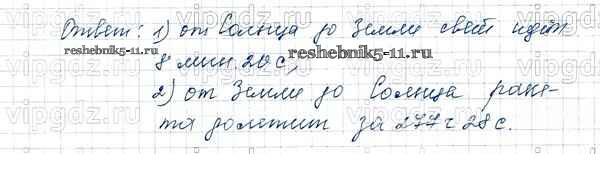 Ответ: 1) от Солнца до Земли свет идёт
reshebnik5-11.ru
reshebnik5-11.ru
8 мин 20 с,
2) от Земли до Солнца раке-
та долетит за 277 ч 28 с.
vipgdz.ru
vipgdz.ru
vipgdz.ru